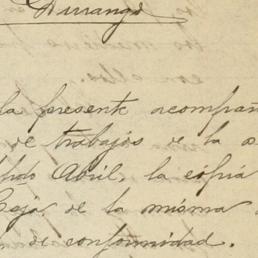 Durango
la presente acompañ
de trabajos de la
Abril, la cópia
Caja de la misma
de conformidad.